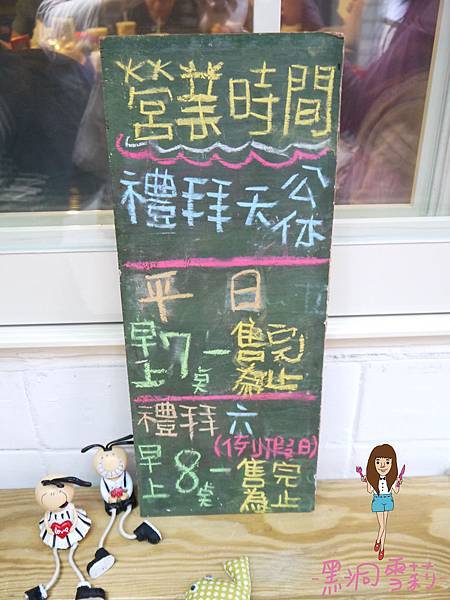 營業時間
禮拜天公休
平日
早上7点-售完為止
禮拜六
(例假日)
早上8点-售完為止
Love
黑洞雪莉